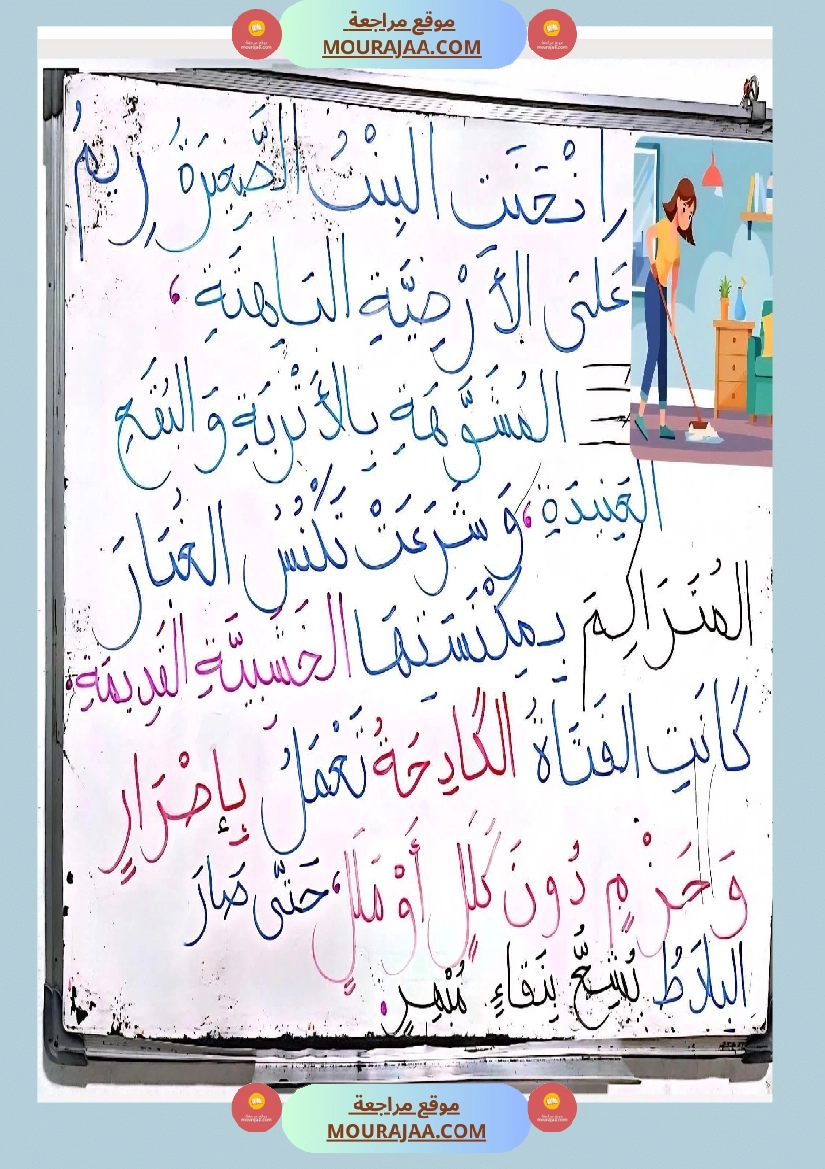 موقع مراجعة
MOURAJAA.COM
اِنْحَنَت البِنْتُ الصَّغِيرَةُ رِيمُ
عَلَى الأَرْضِيَّةِ البَاهِتَةِ،
المُشَوَّهَةِ بِالأَتْرِبَةِ وَالبُقَعِ
العَنِيدَةِ، وَشَرَعَتْ تَكْنُسُ الغُبَارَ
المُتَرَاكِمَ بِمِكْنَسَتِهَا الخَشَبِيَّةِ القَدِيمَةِ.
كَانَتِ الفَتَاةُ الكَادِحَةُ تَعْمَلُ بِإِصْرَارٍ
وَحَزْمٍ دُونَ كَلَلٍ أَوْ مَلَلٍ، حَتَّى صَارَ
البَلَاطُ يُشِعُّ بِنَقَاءٍ مُبْهِرٍ.
موقع مراجعة
MOURAJAA.COM